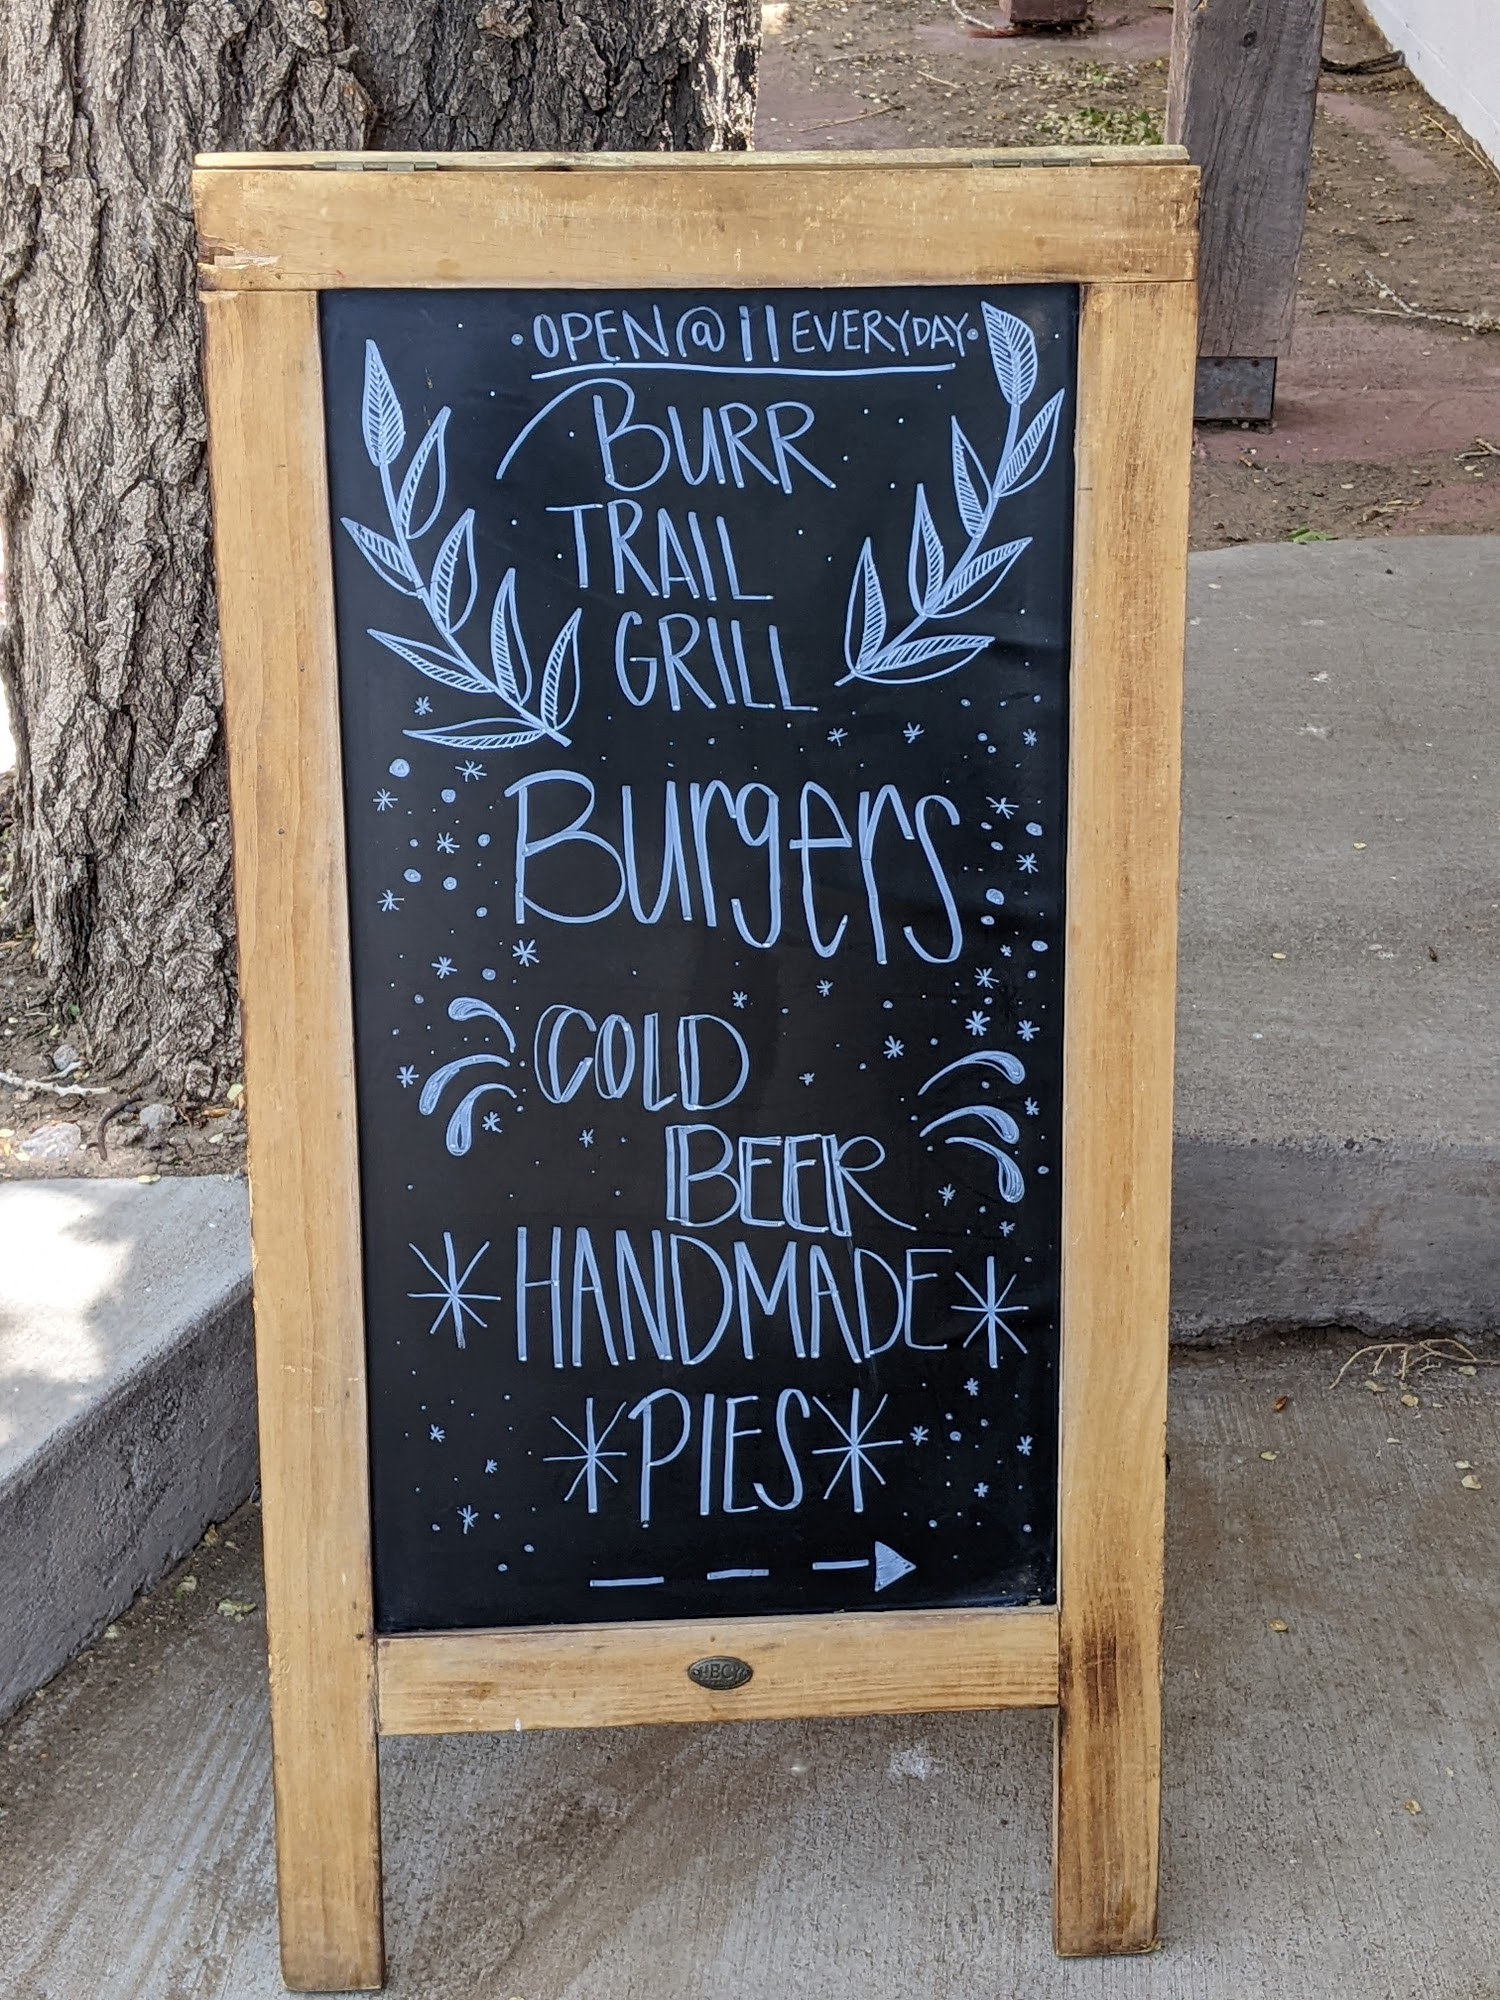 OPEN @ 11 EVERYDAY
BURR
TRAIL
GRILL
Burgers
COLD
BEER
HANDMADE
PIES
HBC